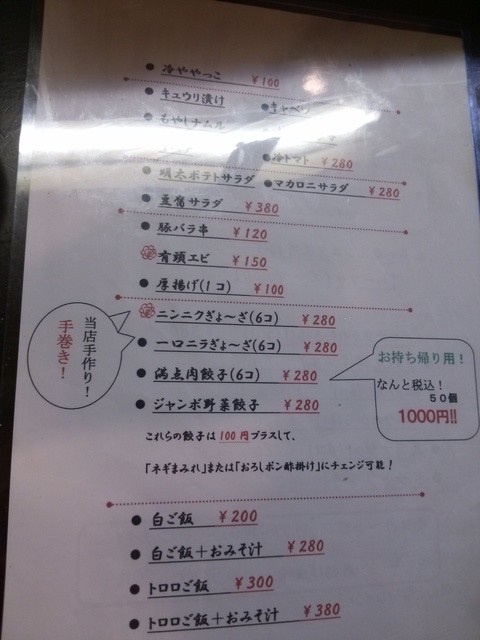 ● 冷ややっこ ￥100
● キュウリ漬け ●キャベツ
● もやしナムル
●冷トマト ￥280
● 明太ポテトサラダ ●マカロニサラダ ￥280
● 豆腐サラダ ￥380
● 豚バラ串 ￥120
有頭エビ ￥150
● 厚揚げ(1コ) ￥100
ニンニクぎょ～ざ(6コ) ￥280
● 一口ニラぎょ～ざ(6コ) ￥280
● 満点肉餃子(6コ) ￥280
● ジャンボ野菜餃子 ￥280
当店手作り！
手巻き！
お持ち帰り用！
なんと税込！
５０個
1000円!!
これらの餃子は100円プラスして、
「ネギまみれ」または「おろしポン酢掛け」にチェンジ可能！
● 白ご飯 ￥200
● 白ご飯＋おみそ汁 ￥280
● トロロご飯 ￥300
● トロロご飯＋おみそ汁 ￥380